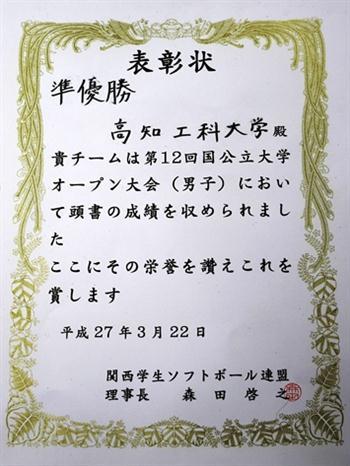 表彰状
準優勝
高知工科大学殿
貴チームは第12回国公立大学
オープン大会（男子）におい
て頭書の成績を収められまし
た
ここにその栄誉を讃えこれを
賞します
平成27年3月22日
関西学生ソフトボール連盟
理事長 森田啓之